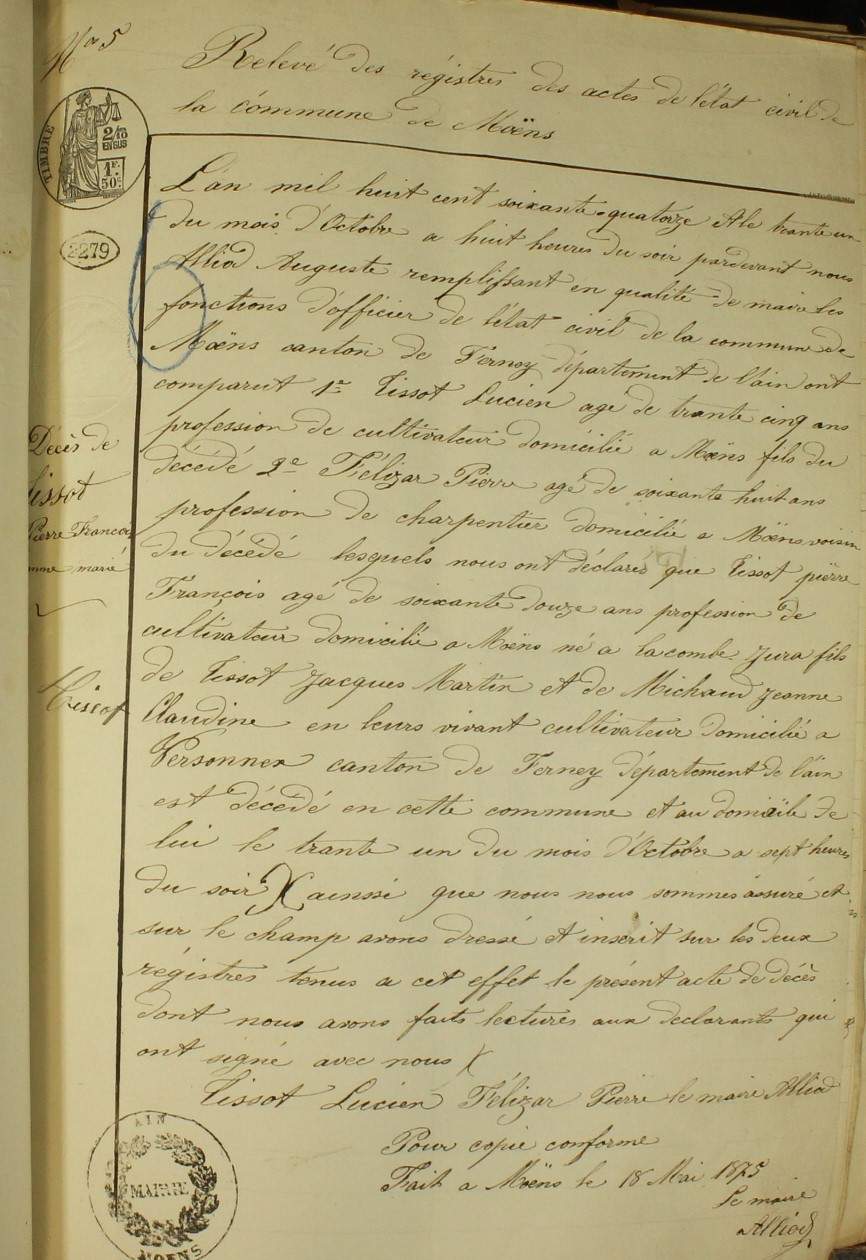 No 5
Relevé des régistres des actes de l'état civil de
la commune de Moëns
TIMBRE
2/10
EN SUS
1F.
50c.
2279
L'an mil huit cent soixante-quatorze & le trante un
du mois d'Octobre a huit heures du soir pardevant nous
Alliod Auguste remplissant en qualité de maire les
fonctions d'officier de l'état civil de la commune de
Moëns canton de Ferney département de l'ain ont
comparut 1er Tissot Lucien agé de trante cinq ans
profession de cultivateur domicilié a Moëns fils du
décédé 2e Félizar Pierre agé de soixante huit ans
profession de charpentier domicilié a Moëns voisin
du décédé lesquels nous ont déclarés que Tissot pierre
François agé de soixante douze ans profession de
cultivateur domicilié a Moëns né a lacombe Jura fils
de Tissot Jacques Martin et de Michaud Jeanne
Claudine en leurs vivant cultivateur domicilié a
Versonnex canton de Ferney département de l'ain
est décédé en cette commune et au domicile de
lui le trante un du mois d'Octobre a sept heures
du soir X ainssi que nous nous sommes assuré et
sur le champ avons dressé et inscrit sur les deux
régistres tenus a cet effet le présent acte de décès
dont nous avons faits lectures aux declarants qui
ont signé avec nous X
Tissot Lucien Félizar Pierre le maire Alliod
Pour copie conforme
Fait a Moëns le 18 Mai 1875
Le maire
Alliod
Décès de
Tissot
Pierre François
homme marié
Tissot
AIN
MAIRIE
MOENS